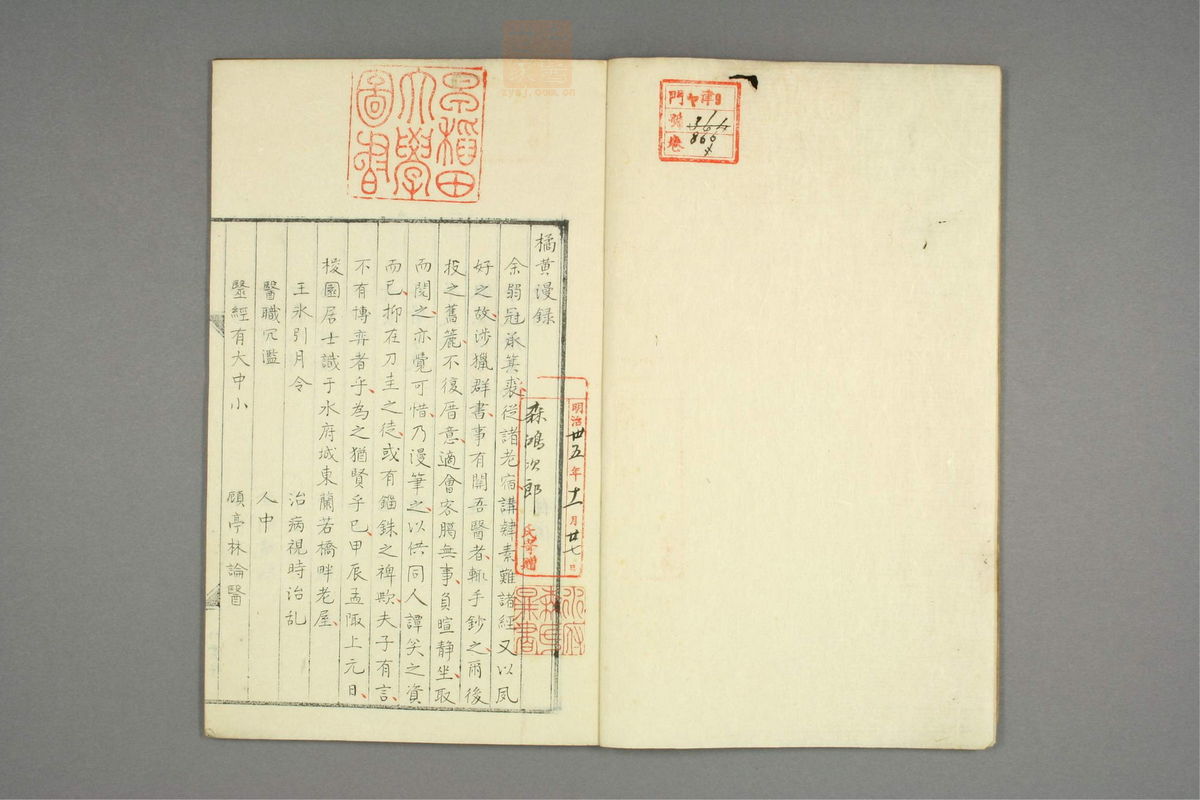 門
ヤ
9
號
卷
866
4
早稻田
大學
圖書
明治卅五年十一月廿七日
森鴻次郎
氏寄贈
橘黄漫録
余弱冠承箕裘從諸老宿講肄素難諸經又以夙
好之故涉獵群書事有關吾醫者輙手鈔之爾後
投之舊簏不復厝意適會客腸無事負暄静坐取
而閱之亦覺可惜乃漫筆之以供同人譚笑之資
而已抑在刀圭之徒或有錙銖之裨歟夫子有言
不有博弈者乎為之猶賢乎已甲辰孟陬上元日
棭園居士識于水府城東蘭若橋畔老屋
王氷引月令
治病視時治乱
醫職冗濫
人中
毉經有大中小
顧亭林論醫
zysj.com.cn